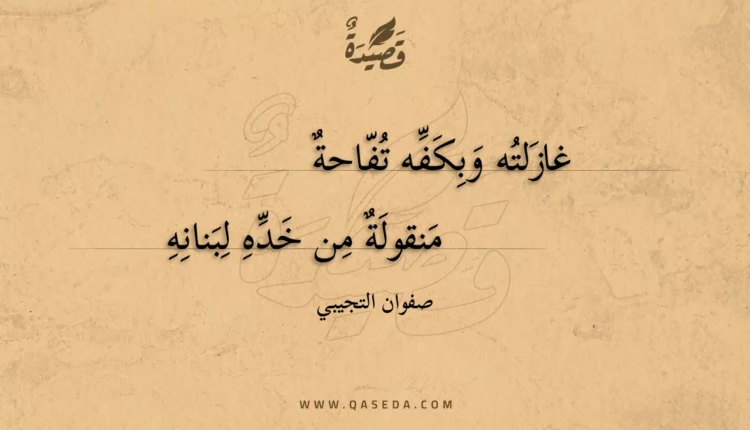 قَصِيدَةٌ
غازَلتُه وَبِكَفِّه تُفّاحةٌ
مَنقولَةٌ مِن خَدِّهِ لِبَنانِهِ
صفوان التجيبي
WWW.QASEDA.COM